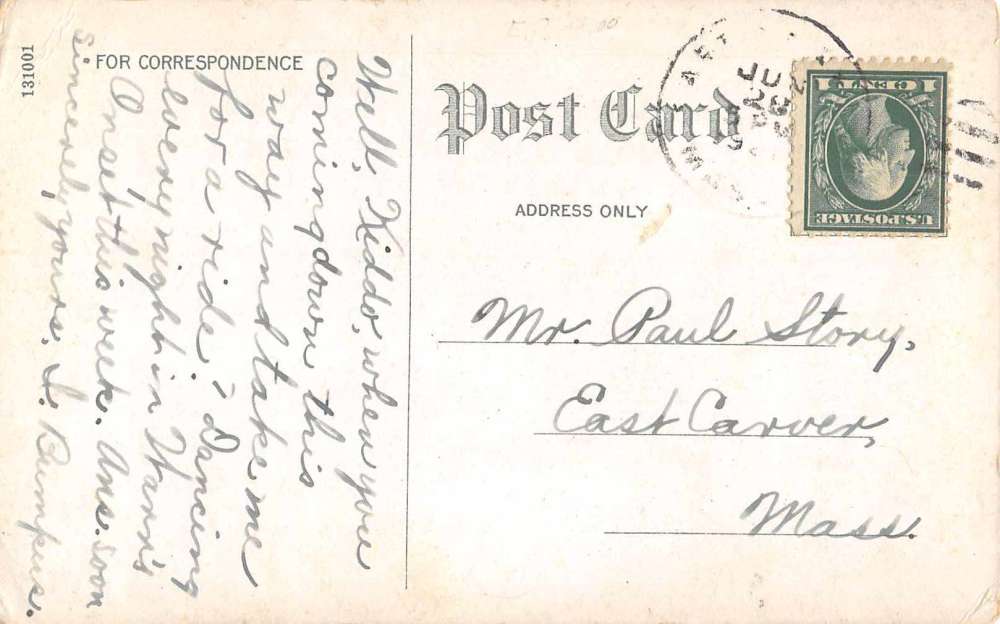 131001
FOR CORRESPONDENCE
Post Card
ADDRESS ONLY
Well, Kiddo, when you
coming down this
way and take me
for a ride? Dancing
every night in
Onset this week. Ans. soon
Sincerely yours. I. Bumpus.
JU
28
1 CENT 1
U.S. POSTAGE
Mr. Paul Story,
East Carver,
Mass.